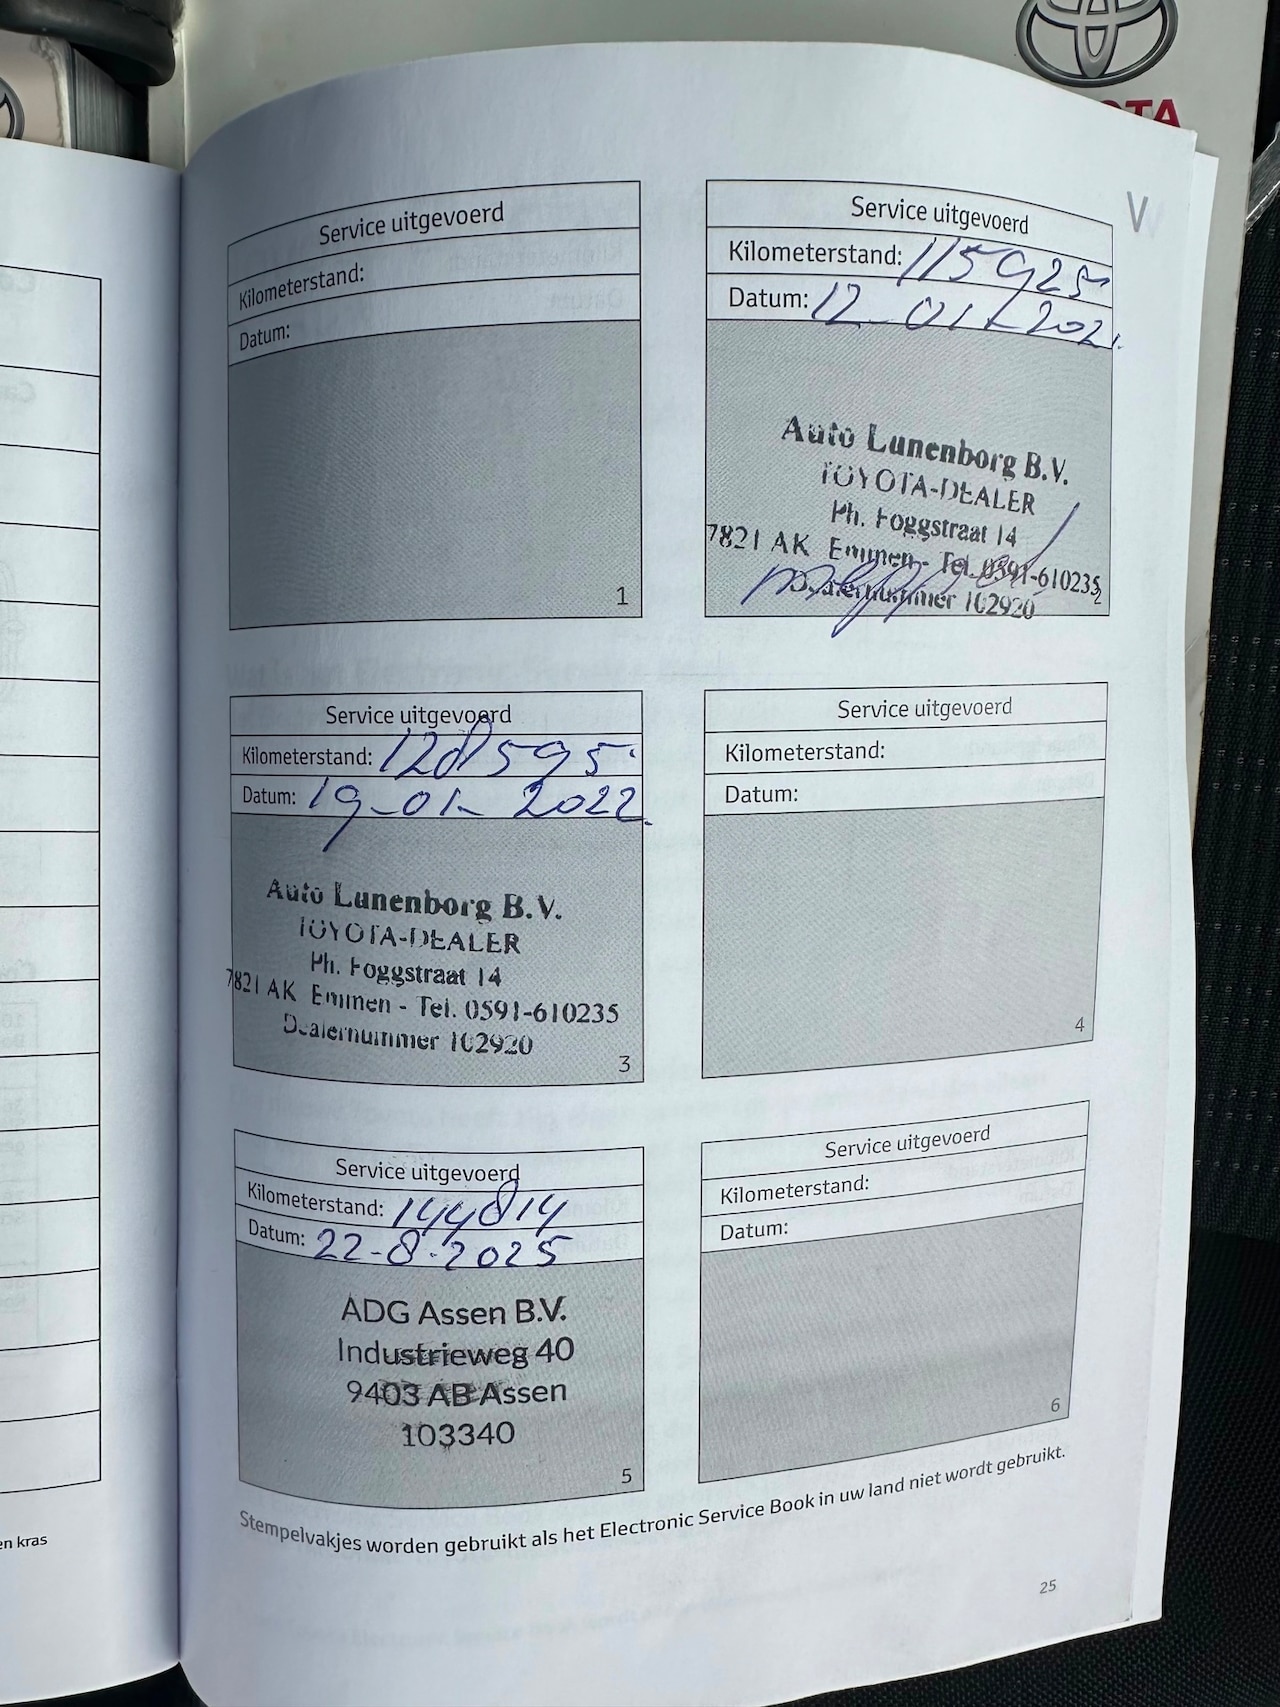 OTA
V
Service uitgevoerd
Kilometerstand:
Datum:
1
Service uitgevoerd
Kilometerstand: 115925
Datum: 12-01-2021.
Auto Lunenborg B.V.
TOYOTA-DEALER
Ph. Foggstraat 14
7821 AK Emmen - Tel. 0591-610235
Dealernummer 102920
2
Service uitgevoerd
Kilometerstand: 128595.
Datum: 19-01-2022.
Auto Lunenborg B.V.
TOYOTA-DEALER
Ph. Foggstraat 14
7821 AK Emmen - Tel. 0591-610235
Dealernummer 102920
3
Service uitgevoerd
Kilometerstand:
Datum:
4
Service uitgevoerd
Kilometerstand: 144814
Datum: 22-8-2025
ADG Assen B.V.
Industrieweg 40
9403 AB Assen
103340
5
Service uitgevoerd
Kilometerstand:
Datum:
6
Stempelvakjes worden gebruikt als het Electronic Service Book in uw land niet wordt gebruikt.
en kras
25